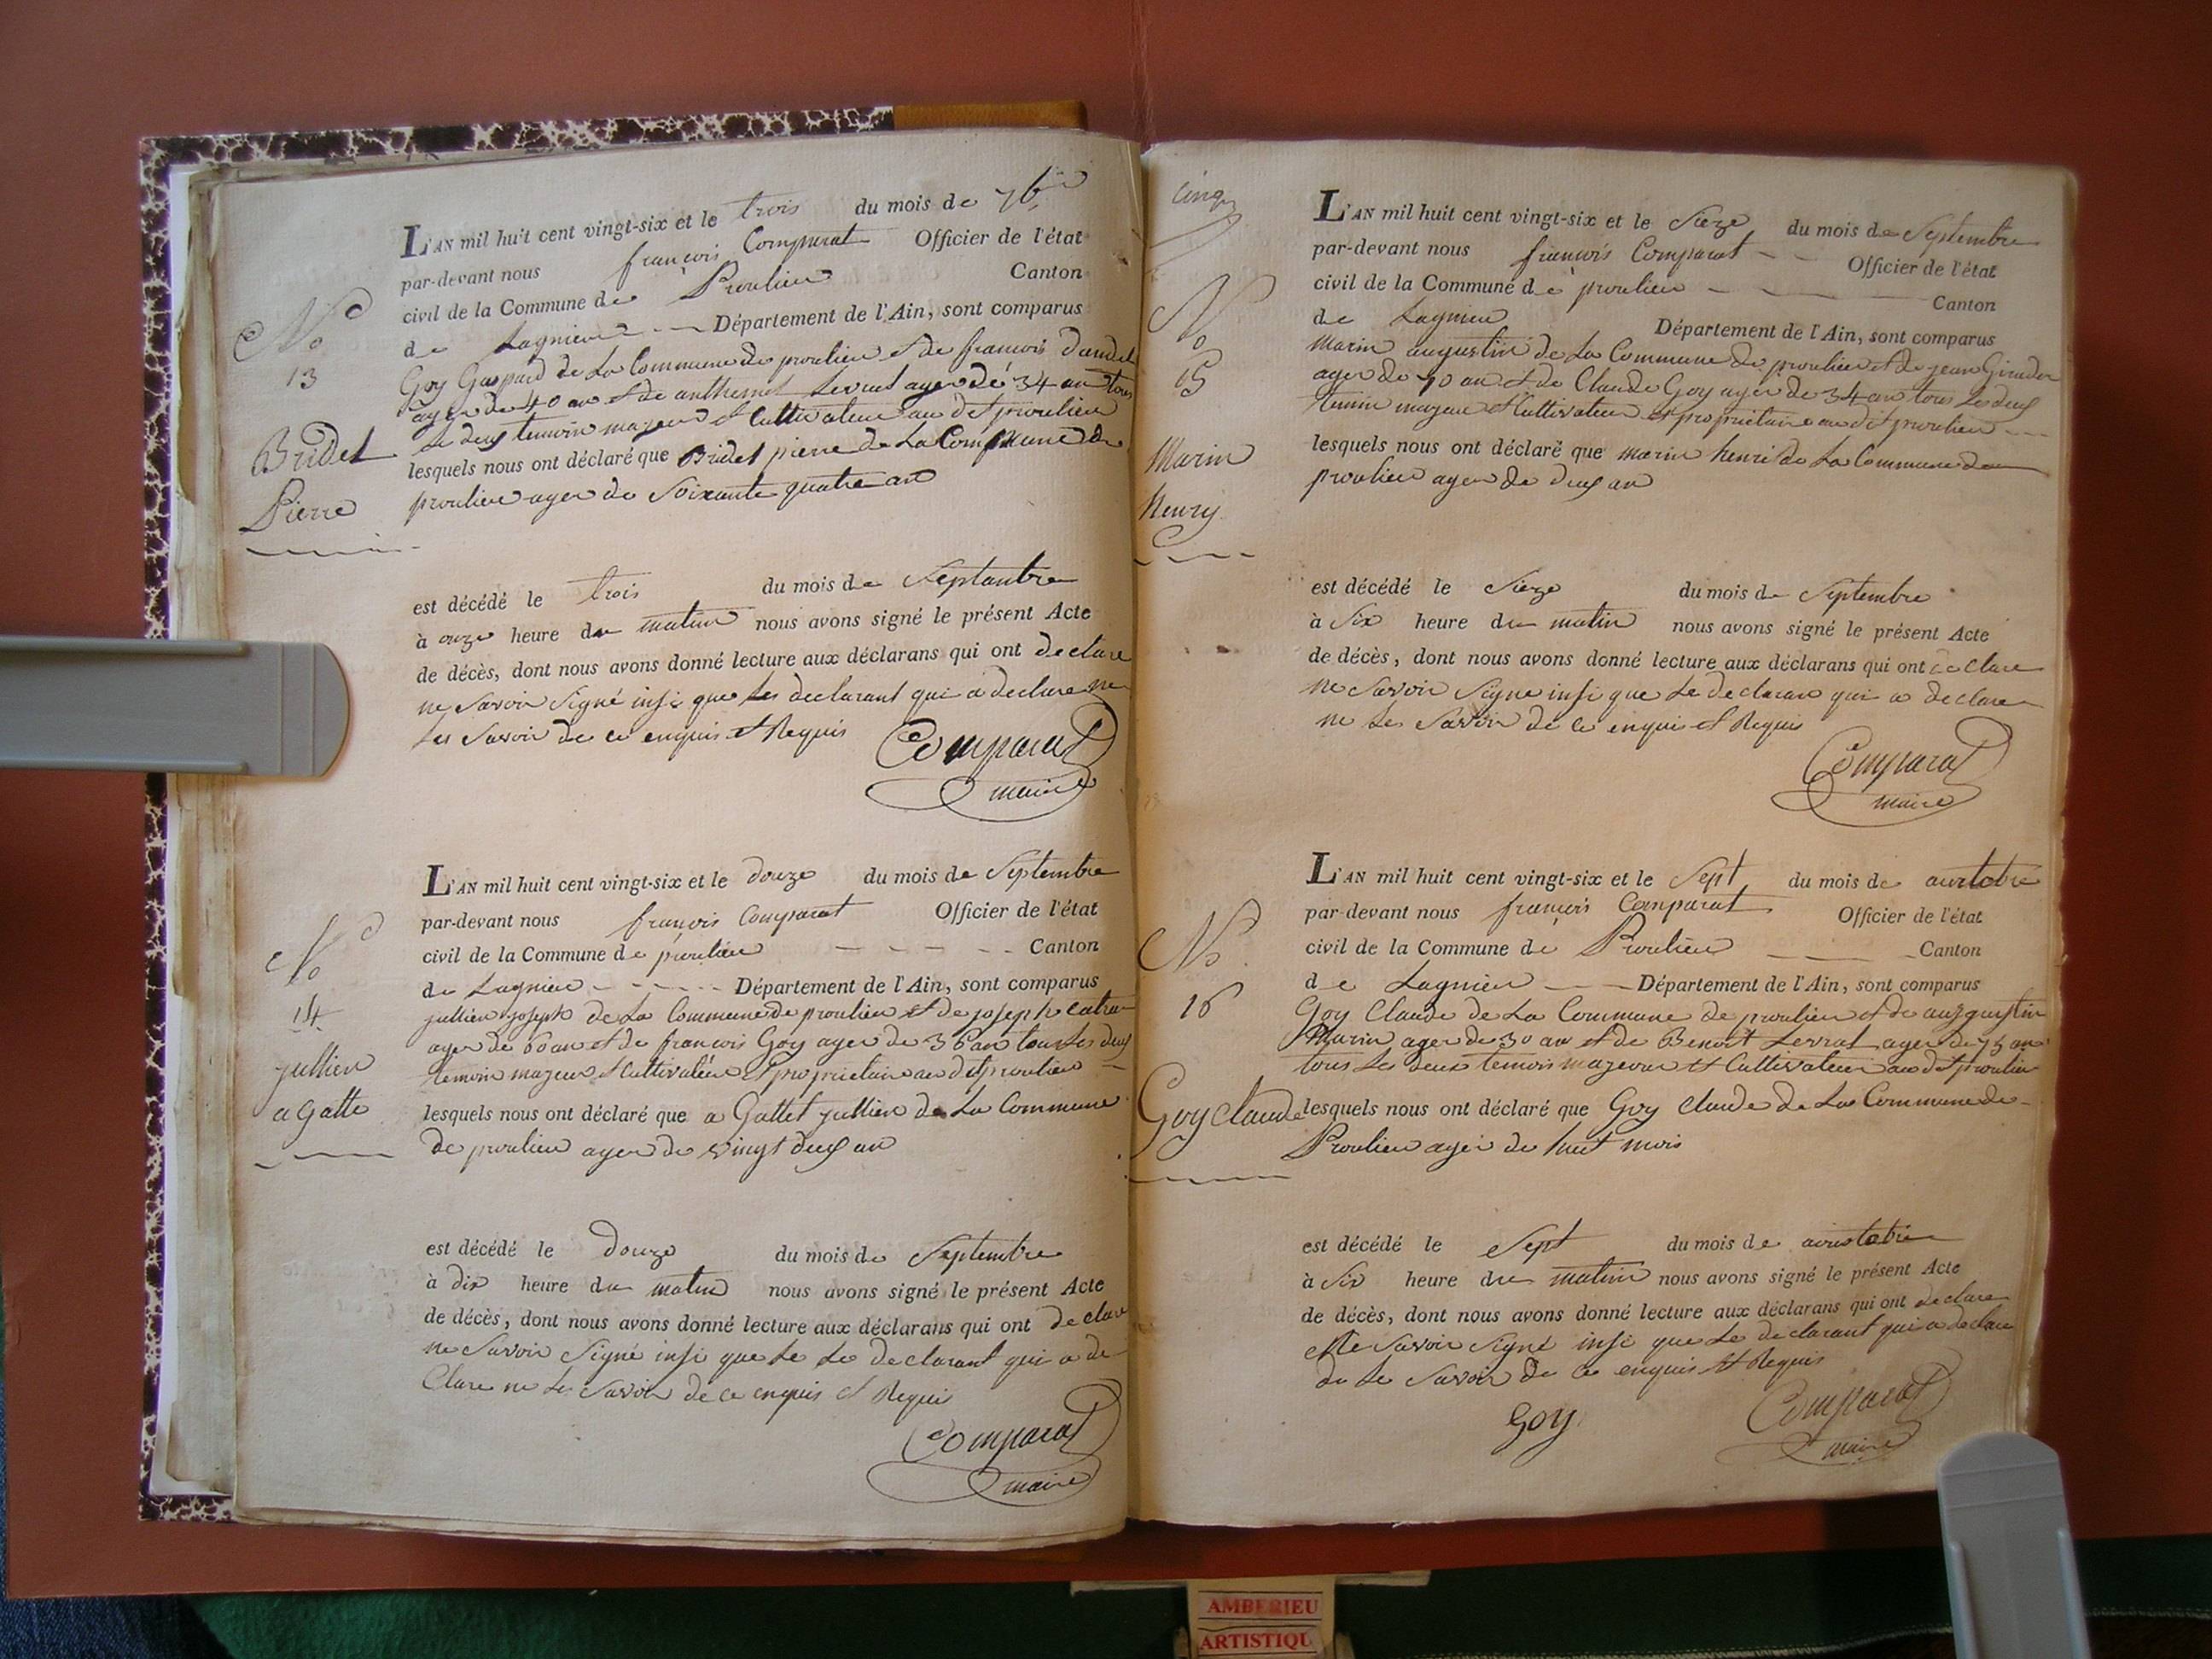 L'AN mil huit cent vingt-six et le trois du mois de 7bre
par-devant nous françois Comparat Officier de l'état
civil de la Commune de Proulieu Canton
de Lagnieu Département de l'Ain, sont comparus
No
13
Bridet
Pierre
Goy Gaspard de La Commune de proulieu et de francois
ager de 40 an et de anthemet Levrat ager de 34 an tous
Le deus temoin majeur et Cultivateur au dit proulieu
lesquels nous ont déclaré que Bridet pierre de La Commune de
proulieu ager de Soixante quatre an
est décédé le trois du mois de Septantbre
à onze heure du matin nous avons signé le présent Acte
de décès, dont nous avons donné lecture aux déclarans qui ont declare
ne Savoir Signé insi que Les declarant qui a declare ne
Les Savoir de ce enquis et Requis
Comparat
maire
L'AN mil huit cent vingt-six et le douze du mois de Septembre
par-devant nous françois Comparat Officier de l'état
civil de la Commune de proulieu Canton
de Lagnieu Département de l'Ain, sont comparus
No
14
jullien
agatte
jullien joseph de La Commune de proulieu et de joseph
ager de 60 an et de francois Goy ager de 36 an tous Les deus
temoin majeur et Cultivateur et proprietaire au dit proulieu
lesquels nous ont déclaré que a Gattet jullien de La Commune
de proulieu ager de vingt deus an
est décédé le douze du mois de Septembre
à dix heure du matin nous avons signé le présent Acte
de décès, dont nous avons donné lecture aux déclarans qui ont declare
ne Savoir Signé insi que Le Le declarant qui a de
Clare ne Les Savoir de ce enquis et Requis
Comparat
maire
cinq
L'AN mil huit cent vingt-six et le Sieze du mois de Septembre
par-devant nous françois Comparat Officier de l'état
civil de la Commune de proulieu Canton
de Lagnieu Département de l'Ain, sont comparus
No
15
Marin
henry
Marin augustin de La Commune de proulieu et de jean
ager de 70 an et de Claude Goy ager de 34 an tous Les deus
temin majeur et Cultivateur et proprietaire au dit proulieu
lesquels nous ont déclaré que marin henri de La Commune de
proulieu ager de deus an
est décédé le Sieze du mois de Septembre
à Six heure du matin nous avons signé le présent Acte
de décès, dont nous avons donné lecture aux déclarans qui ont declare
ne Savoir Signe insi que Le declaran qui a declare
ne Les Savoir de ce enquis et Requis
Comparat
maire
L'AN mil huit cent vingt-six et le Sept du mois de auctobre
par-devant nous françois Comparat Officier de l'état
civil de la Commune de Proulieu Canton
de Lagnieu Département de l'Ain, sont comparus
No
16
Goy Claude
Goy Claude de La Commune de proulieu et de auzgustin
Marin ager de 30 an et de Benoît Levrat ager de 75 an
tous Les deux temoin majeur et Cultivateur au dit proulieu
lesquels nous ont déclaré que Goy Claude de La Commune de
Proulieu ager de huit mois
est décédé le Sept du mois de
à Six heure du matin nous avons signé le présent Acte
de décès, dont nous avons donné lecture aux déclarans qui ont declare
Ne Savoir Signé insi que Le declarant qui a declare
de Le Savoir de ce enquis et Requis
Goy
Comparat
maire
AMBERIEU
ARTISTIQU